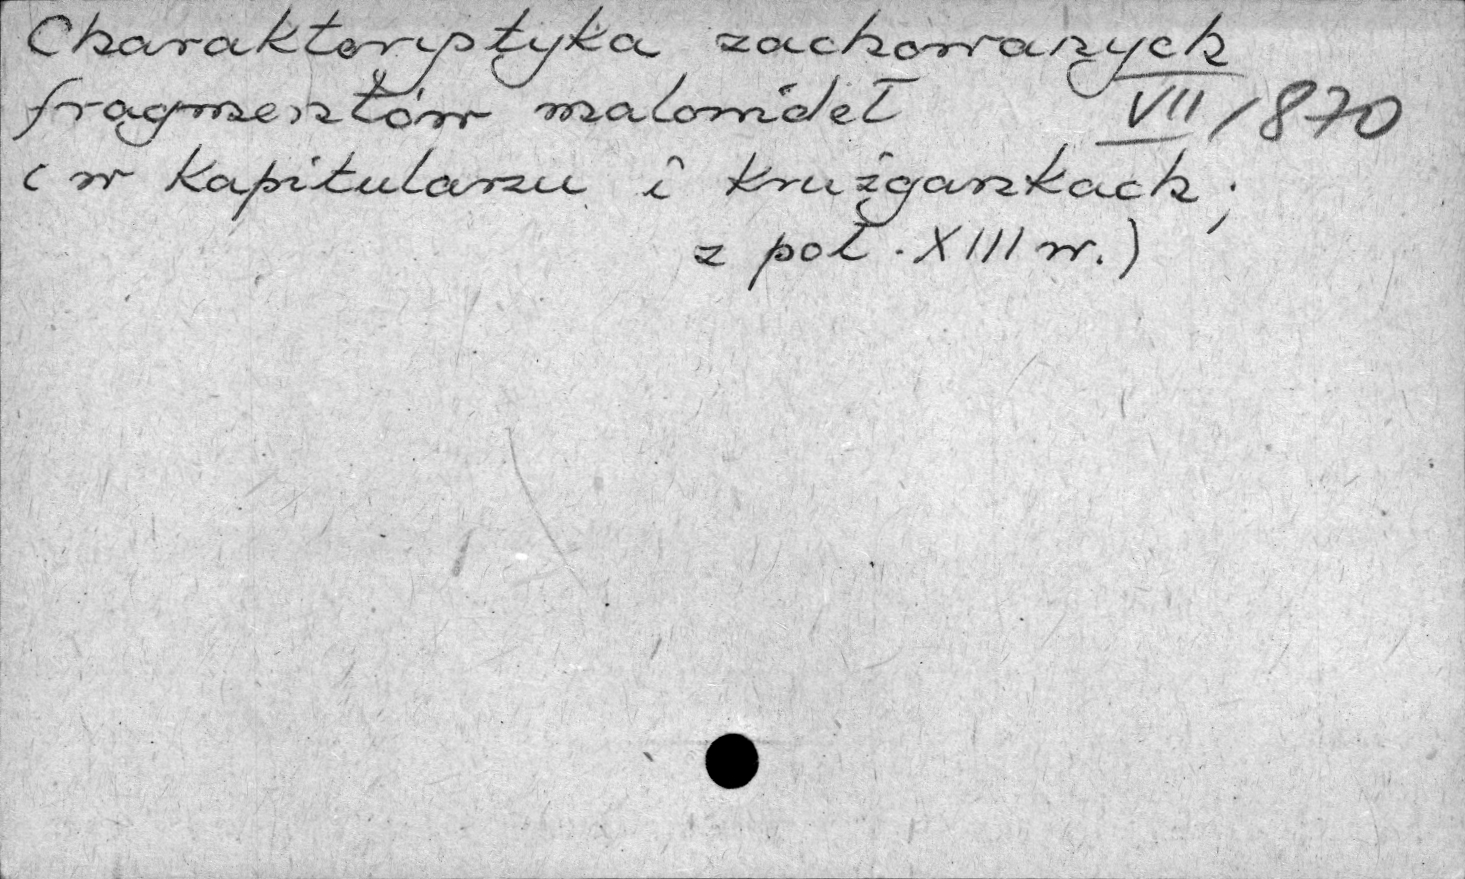 Charakterystyka zachowanych
fragmentów malowideł VII/870
(w kapitularzu i krużgankach;
z poł. XIII w.)